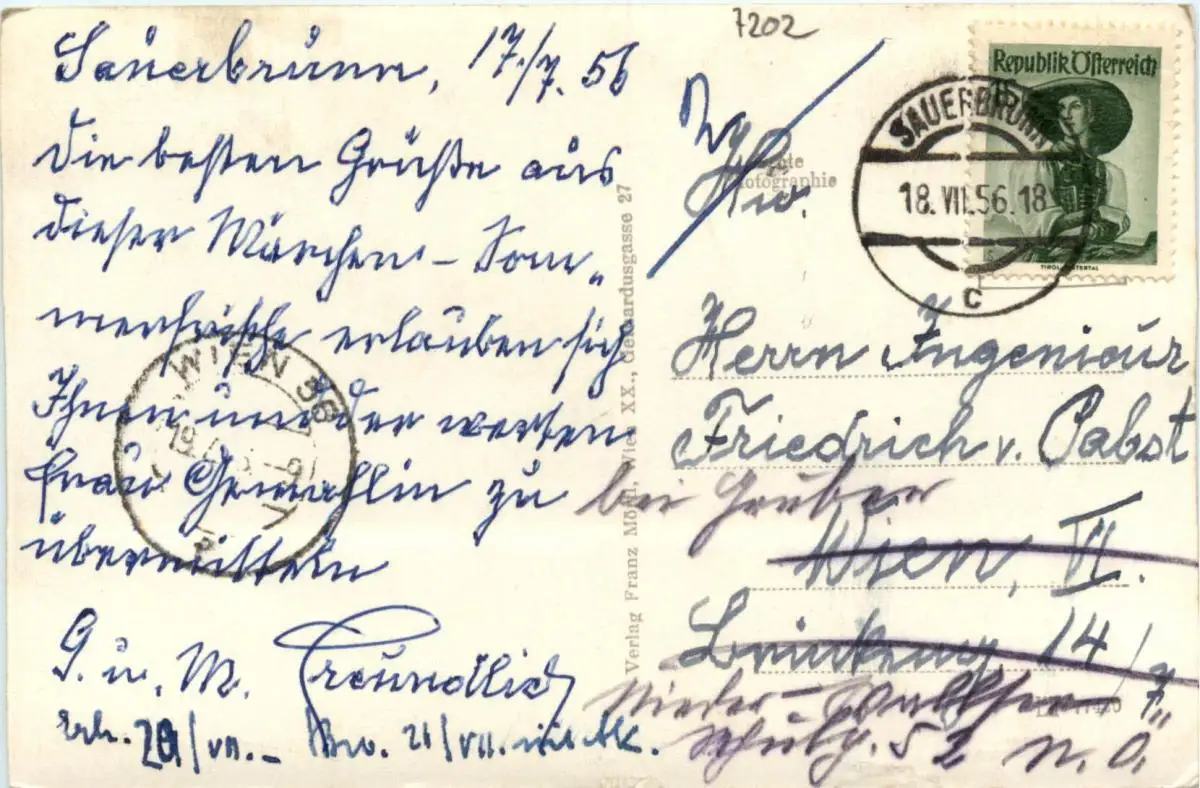 7202
Sauerbrunn, 17./7. 56
Die besten Grüße aus
dieser Märchen-Som„
merfrische erlauben sich
Ihnen und der werten
Frau Gemahlin zu
übermitteln
G. u. M. Freundlich
Erh. 20/VII.- Bw. 21/VII. mit Ak.
Verlag Franz Wien XX., Gerhardusgasse 27
Echte
Photographie
Republik Österreich
SAUERBRUNN
18. VII. 56. 18
C
WIEN 56
Herrn Ingenieur
Friedrich v. Pabst
bei Gruber
Wien, VI.
14/7
Nieder-
52 N.Ö.